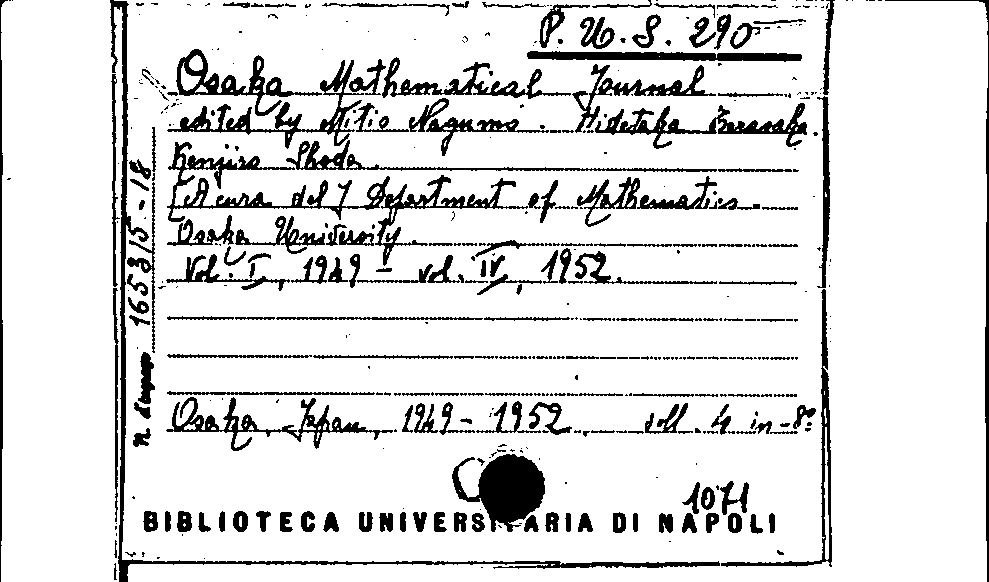 P. U. S. 290
Osaka Mathematical Journal
edited by Mitio Nagumo. Hidetaka Terasaka.
Kenjiro Shoda.
[A cura del] Department of Mathematics.
Osaka University.
Vol. I, 1949 - vol. IV, 1952.
Osaka, Japan, 1949-1952. voll. 4 in-8°
n. d'ingresso 165315-18
1071
BIBLIOTECA UNIVERSITARIA DI NAPOLI